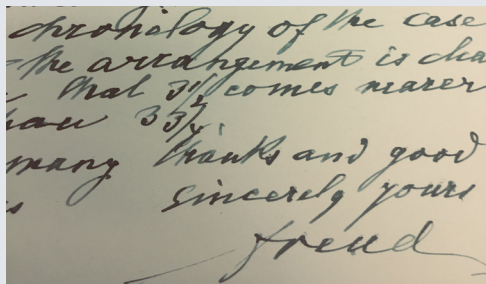 chronology of the case
the arrangement is cha
that 3½ comes nearer
than 3¾.
many thanks and good
s sincerely yours
freud